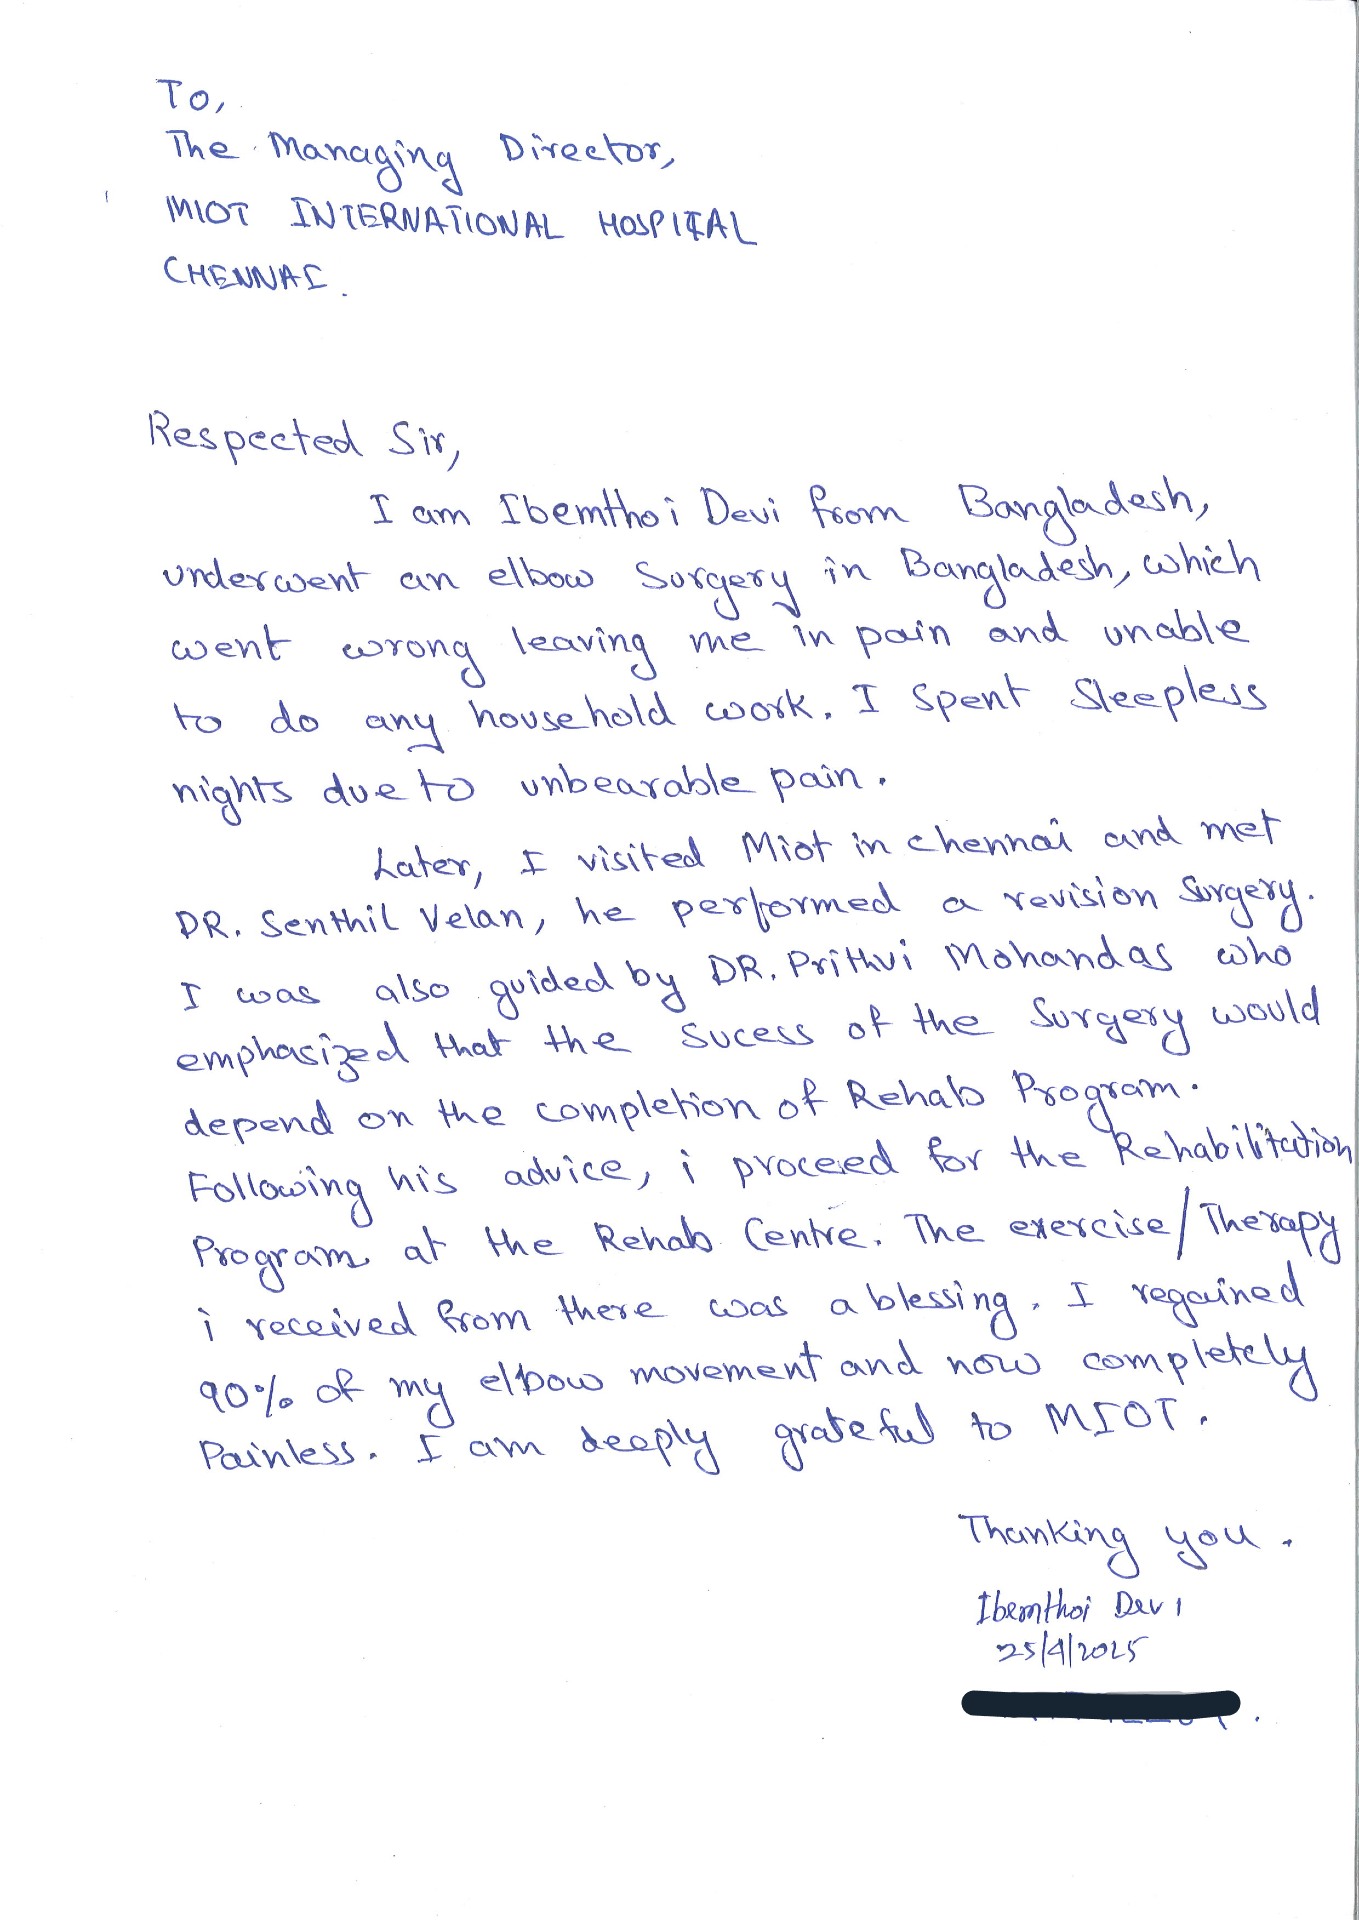 To,
The Managing Director,
MIOT INTERNATIONAL HOSPITAL
CHENNAI.
Respected Sir,
I am Ibemthoi Devi from Bangladesh,
underwent an elbow Surgery in Bangladesh, which
went wrong leaving me in pain and unable
to do any household work. I Spent Sleepless
nights due to unbearable pain.
Later, I visited Miot in chennai and met
DR. Senthil Velan, he performed a revision Surgery.
I was also guided by DR. Prithvi Mohandas who
emphasized that the Sucess of the Surgery would
depend on the completion of Rehab Program.
Following his advice, i proceed for the Rehabilitation
Program at the Rehab Centre. The exercise/Therapy
i received from there was a blessing. I regained
90% of my elbow movement and now completely
Painless. I am deeply grateful to MIOT.
Thanking you.
Ibemthoi Devi
25/4/2025